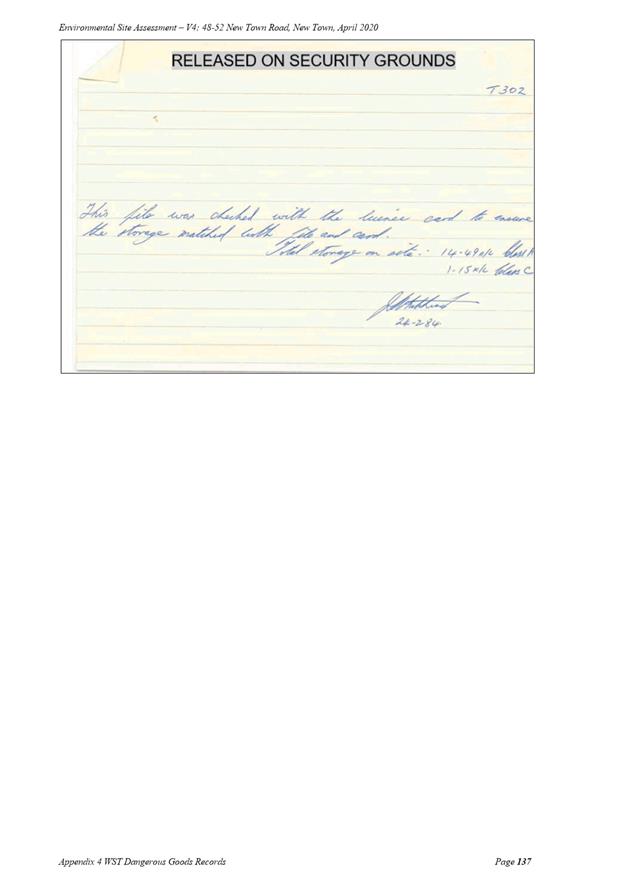 Environmental Site Assessment – V4: 48-52 New Town Road, New Town, April 2020
RELEASED ON SECURITY GROUNDS
T302
This file was checked with the licence card to ensure
the storage matched with file and card.
Total storage on site:- 14-49 K/L Class A
1-15 K/L Class C
24-2-84
Appendix 4 WST Dangerous Goods Records
Page 137